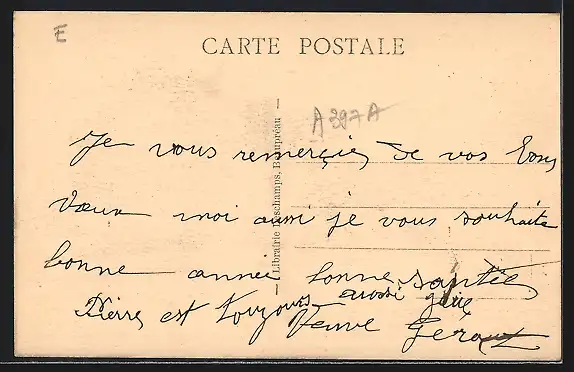 E
CARTE POSTALE
A397A
Librairie Deschamps, Beaupréau
Je vous remerçies de vos bons
Vœux moi aussi je vous souhaite
bonne année bonne santée
Pierre est toujours aussi gaie
Veuve